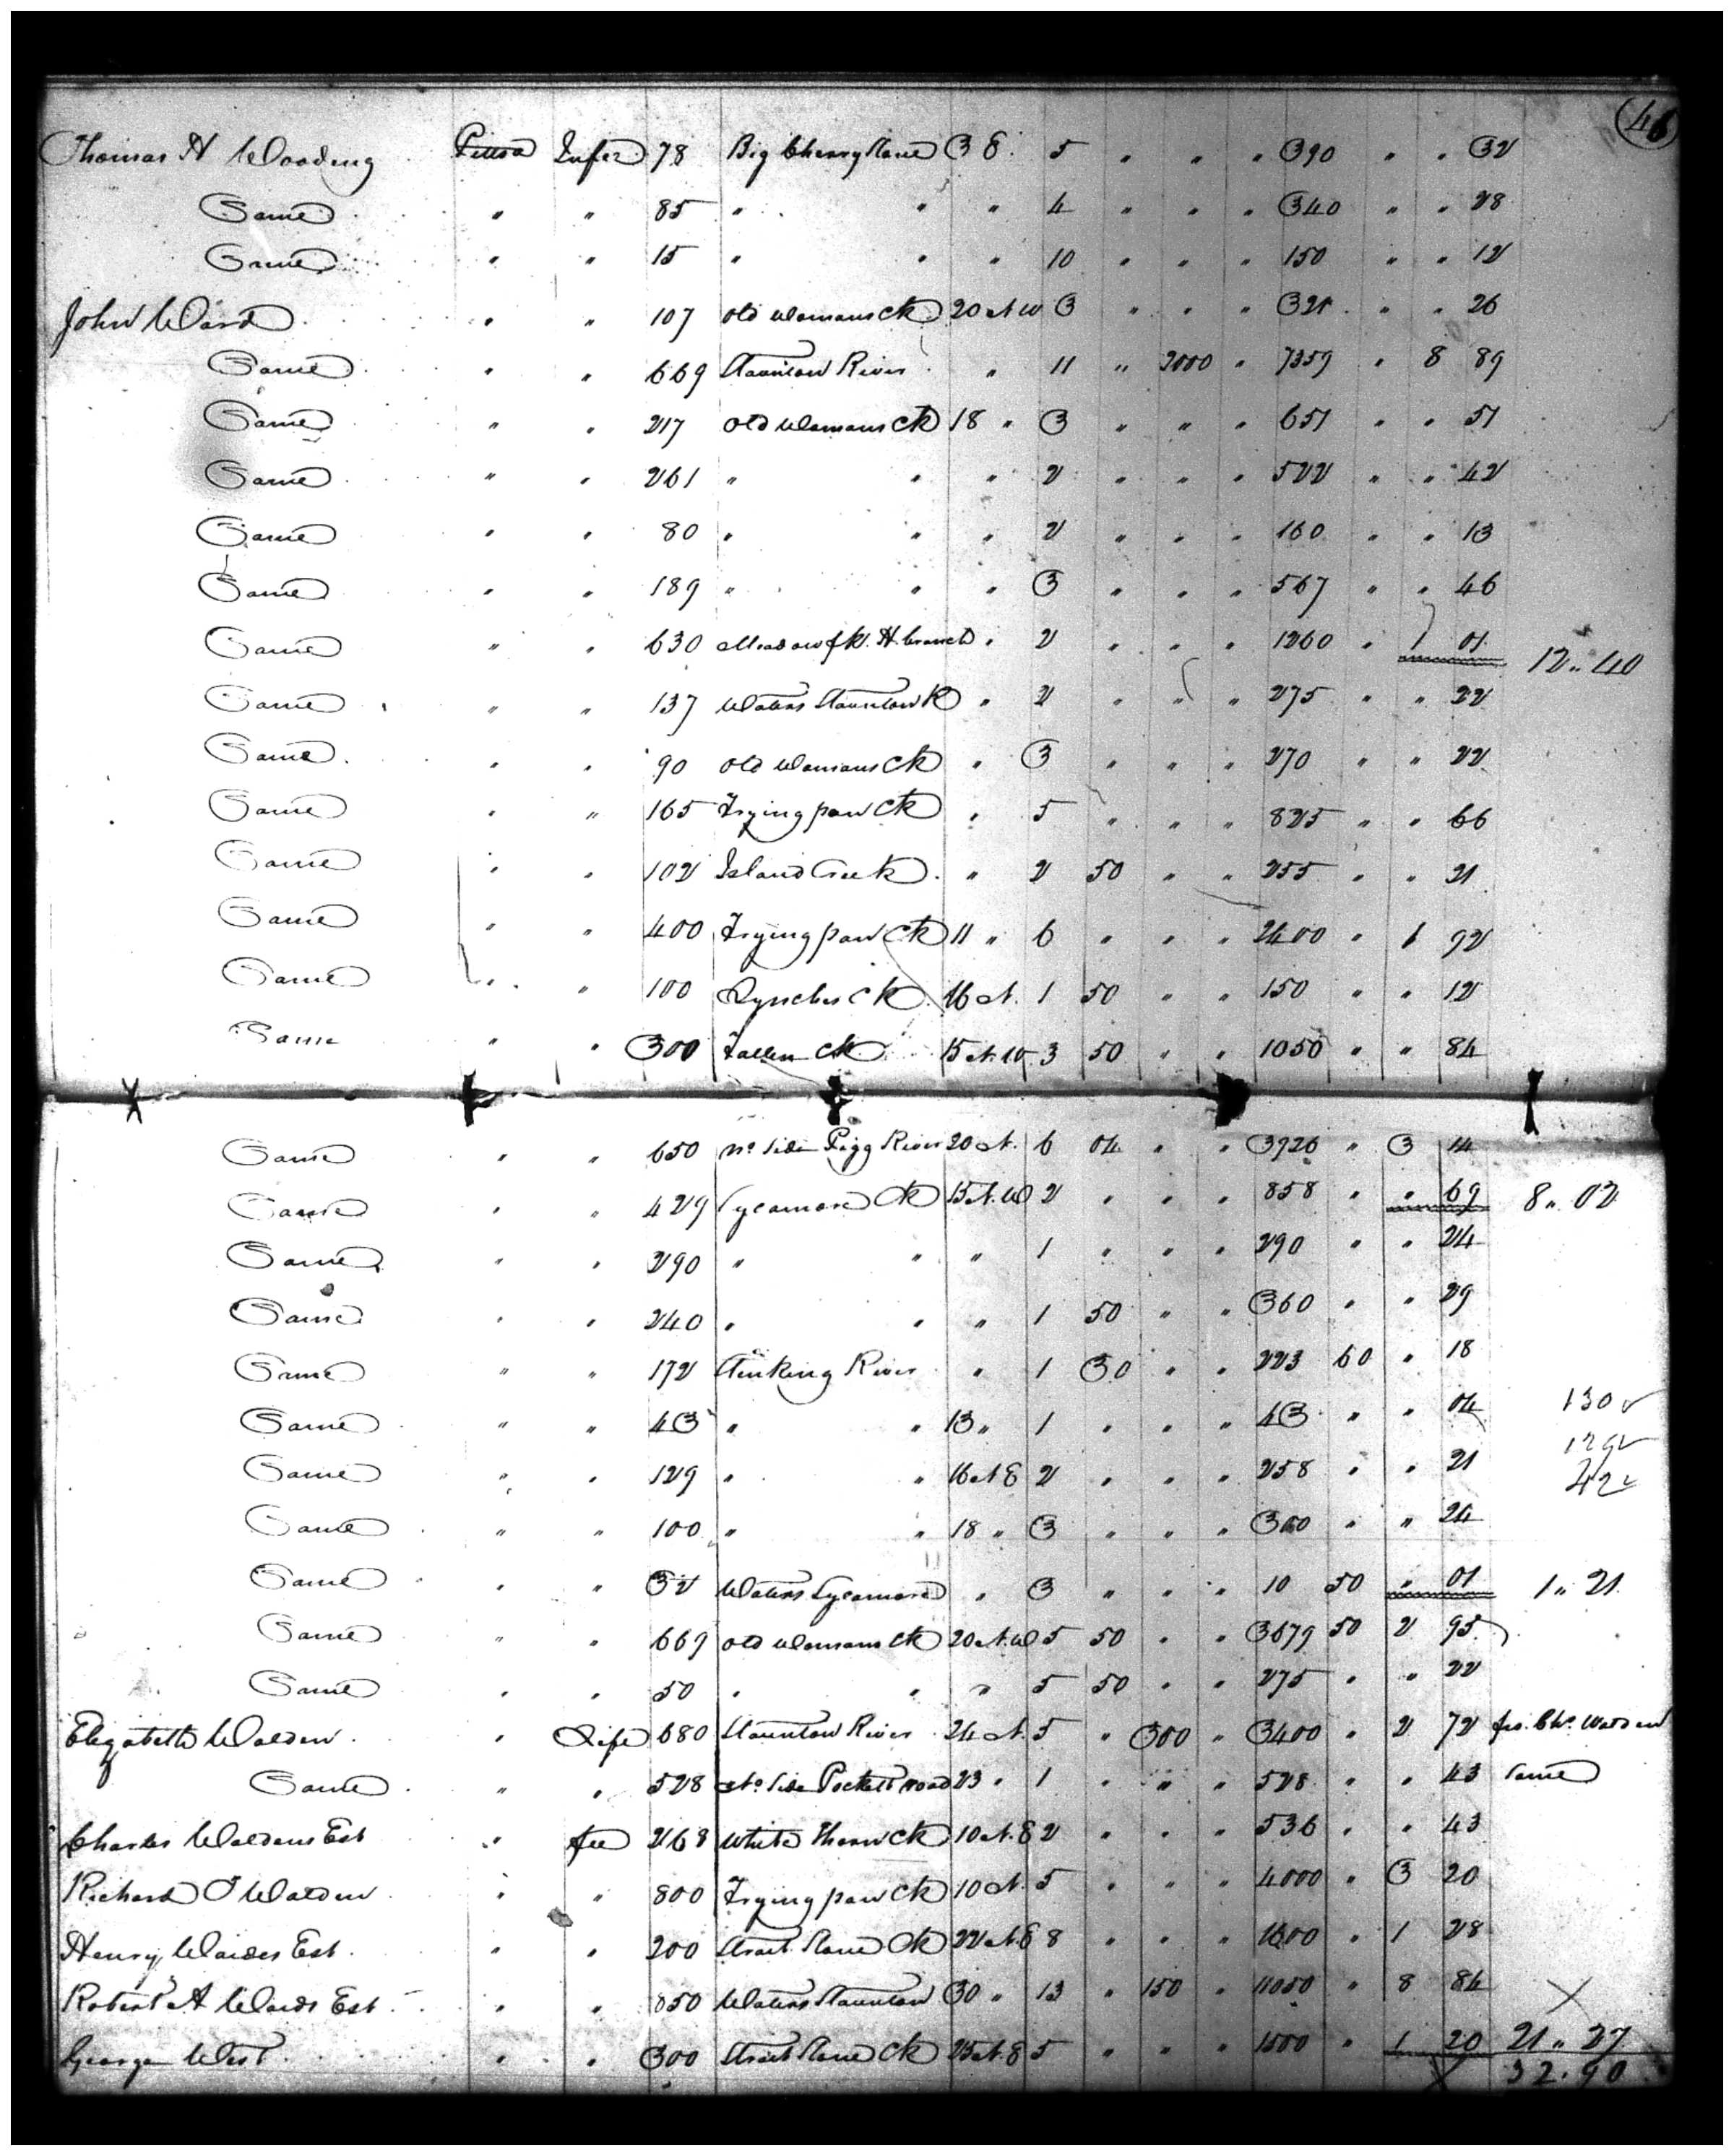 46
Thomas H Wooding Pittsa In fee 78 Big Cherrystone 3 E 5 " " " 390 " " 32
Same " " 85 " " " 4 " " " 340 " " 28
Same " " 15 " " " 10 " " " 150 " " 12
John Ward " " 107 Old Womans Ck 20 N W 3 " " " 321 " " 26
Same " " 669 Staunton River " 11 " 2000 " 7359 " 8 89
Same " " 217 Old Womans Ck 18 " 3 " " " 651 " " 51
Same " " 261 " " " 2 " " " 522 " " 42
Same " " 80 " " " 2 " " " 160 " " 13
Same " " 189 " " " 3 " " " 567 " " 46
Same " " 630 Meadow fk. H. branch " 2 " " " 1260 " 1 01 12 " 40
Same " " 137 Waters Staunton R " 2 " " " 275 " " 22
Same " " 90 Old Womans Ck " 3 " " " 270 " " 22
Same " " 165 Frying pan Ck " 5 " " " 825 " " 66
Same " " 102 Island Creek " 2 50 " " 255 " " 21
Same " " 400 Frying pan Ck 11 " 6 " " " 2400 " 1 92
Same " " 100 Lynches Ck 16 N. 1 50 " " 150 " " 12
Same " " 300 Ck 15 N. W 3 50 " " 1050 " " 84
Same " " 650 No. Side Pigg River 20 N. 6 04 " " 3926 " 3 14
Same " " 429 Sycamore Ck 15 N. W 2 " " " 858 " " 69 8 " 02
Same " " 290 " " " 1 " " " 290 " " 24
Same " " 240 " " " 1 50 " " 360 " " 29
Same " " 172 Stinking River " 1 30 " " 223 60 " 18
Same " " 43 " " 13 " 1 " " " 43 " " 04 130
Same " " 129 " " 16 N E 2 " " " 258 " " 21 129
42
Same " " 100 " " 18 " 3 " " " 300 " " 24
Same " " 32 Waters Sycamore " 3 " " " 10 50 " 01 1 " 21
Same " " 669 Old Womans Ck 20 N. W 5 50 " " 3679 50 2 95
Same " " 50 " " " 5 50 " " 275 " " 22
Elizabeth Walden " Life 680 Staunton River 24 N. 5 " 300 " 3400 " 2 72 Chs. Walden
Same " " 528 No. Side Pocketts road 23 " 1 " " " 528 " " 43 Same
Charles Waldens Est " fee 268 White Thorn Ck 10 N. E 2 " " " 536 " " 43
Richard Walden " " 800 Frying pan Ck 10 N. 5 " " " 4000 " 3 20
Henry Wards Est. " " 200 Strait Stone Ck 22 N. E 8 " " " 1600 " 1 28
Robert A Wards Est " " 850 Waters Staunton 30 " 13 " 150 " 11050 " 8 84
George West " " 300 Strait Stone Ck 25 N. E 5 " " " 1500 " 1 20 21 " 27
32.90